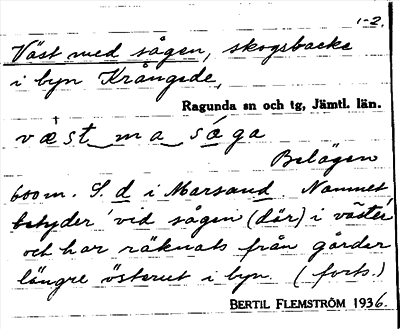 1-2.
Väst med sågen, skogsbacke
i byn Krångede,
Ragunda sn och tg, Jämtl. län.
væst ma såga
Belägen
600 m. S. d i Marsund Namnet
betyder 'vid sågen (där) i väster'
och har räknats från gårdar
längre österut i byn. (forts.)
BERTIL FLEMSTRÖM 1936.